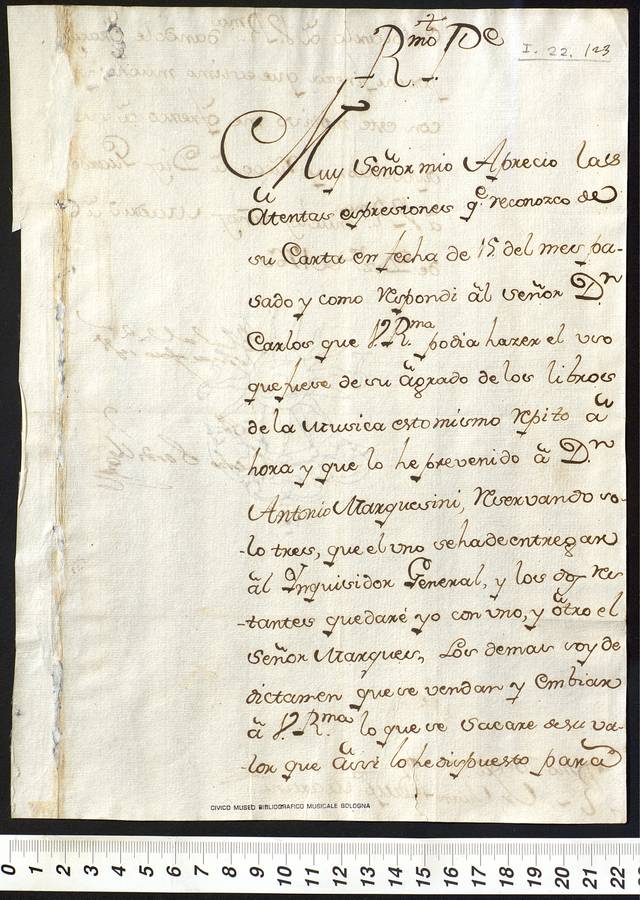 Rmo Pe
I. 22. 123
Muy Señor mio Aprecio las
atentas espresiones qe reconozco de
su Carta en fecha de 15 del mes pa-
sado y como respondi al señor Dn
Carlos que V. Rma podia hazer el uso
que fuese de su agrado de los libros
de la Musica esto mismo repito a
hora y que lo he prevenido a Dn
Antonio Marquesini, reservando so-
-lo tres, que el uno se ha de entregar
al Inquisidor General, y los dos res
-tantes quedaré yo con uno, y otro el
señor Marques, Los demas soy de
dictamen que se vendan y embiar
a V. Rma lo que se sacare de su va-
-lor que assi lo he dispuesto para
CIVICO MUSEO BIBLIOGRAFICO MUSICALE BOLOGNA
0 1 2 3 4 5 6 7 8 9 10 11 12 13 14 15 16 17 18 19 20 21 22